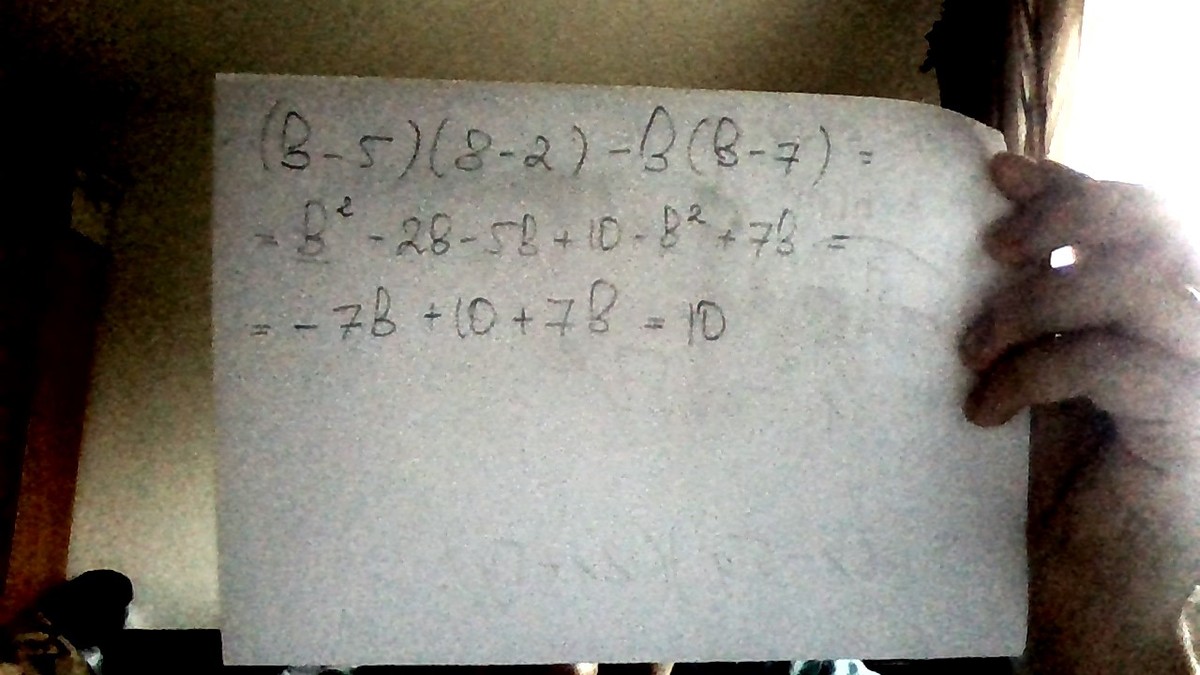 (в-5)(в-2)-в(в-7)=
=в²-2в-5в+10-в²+7в=
=-7в+10+7в=10